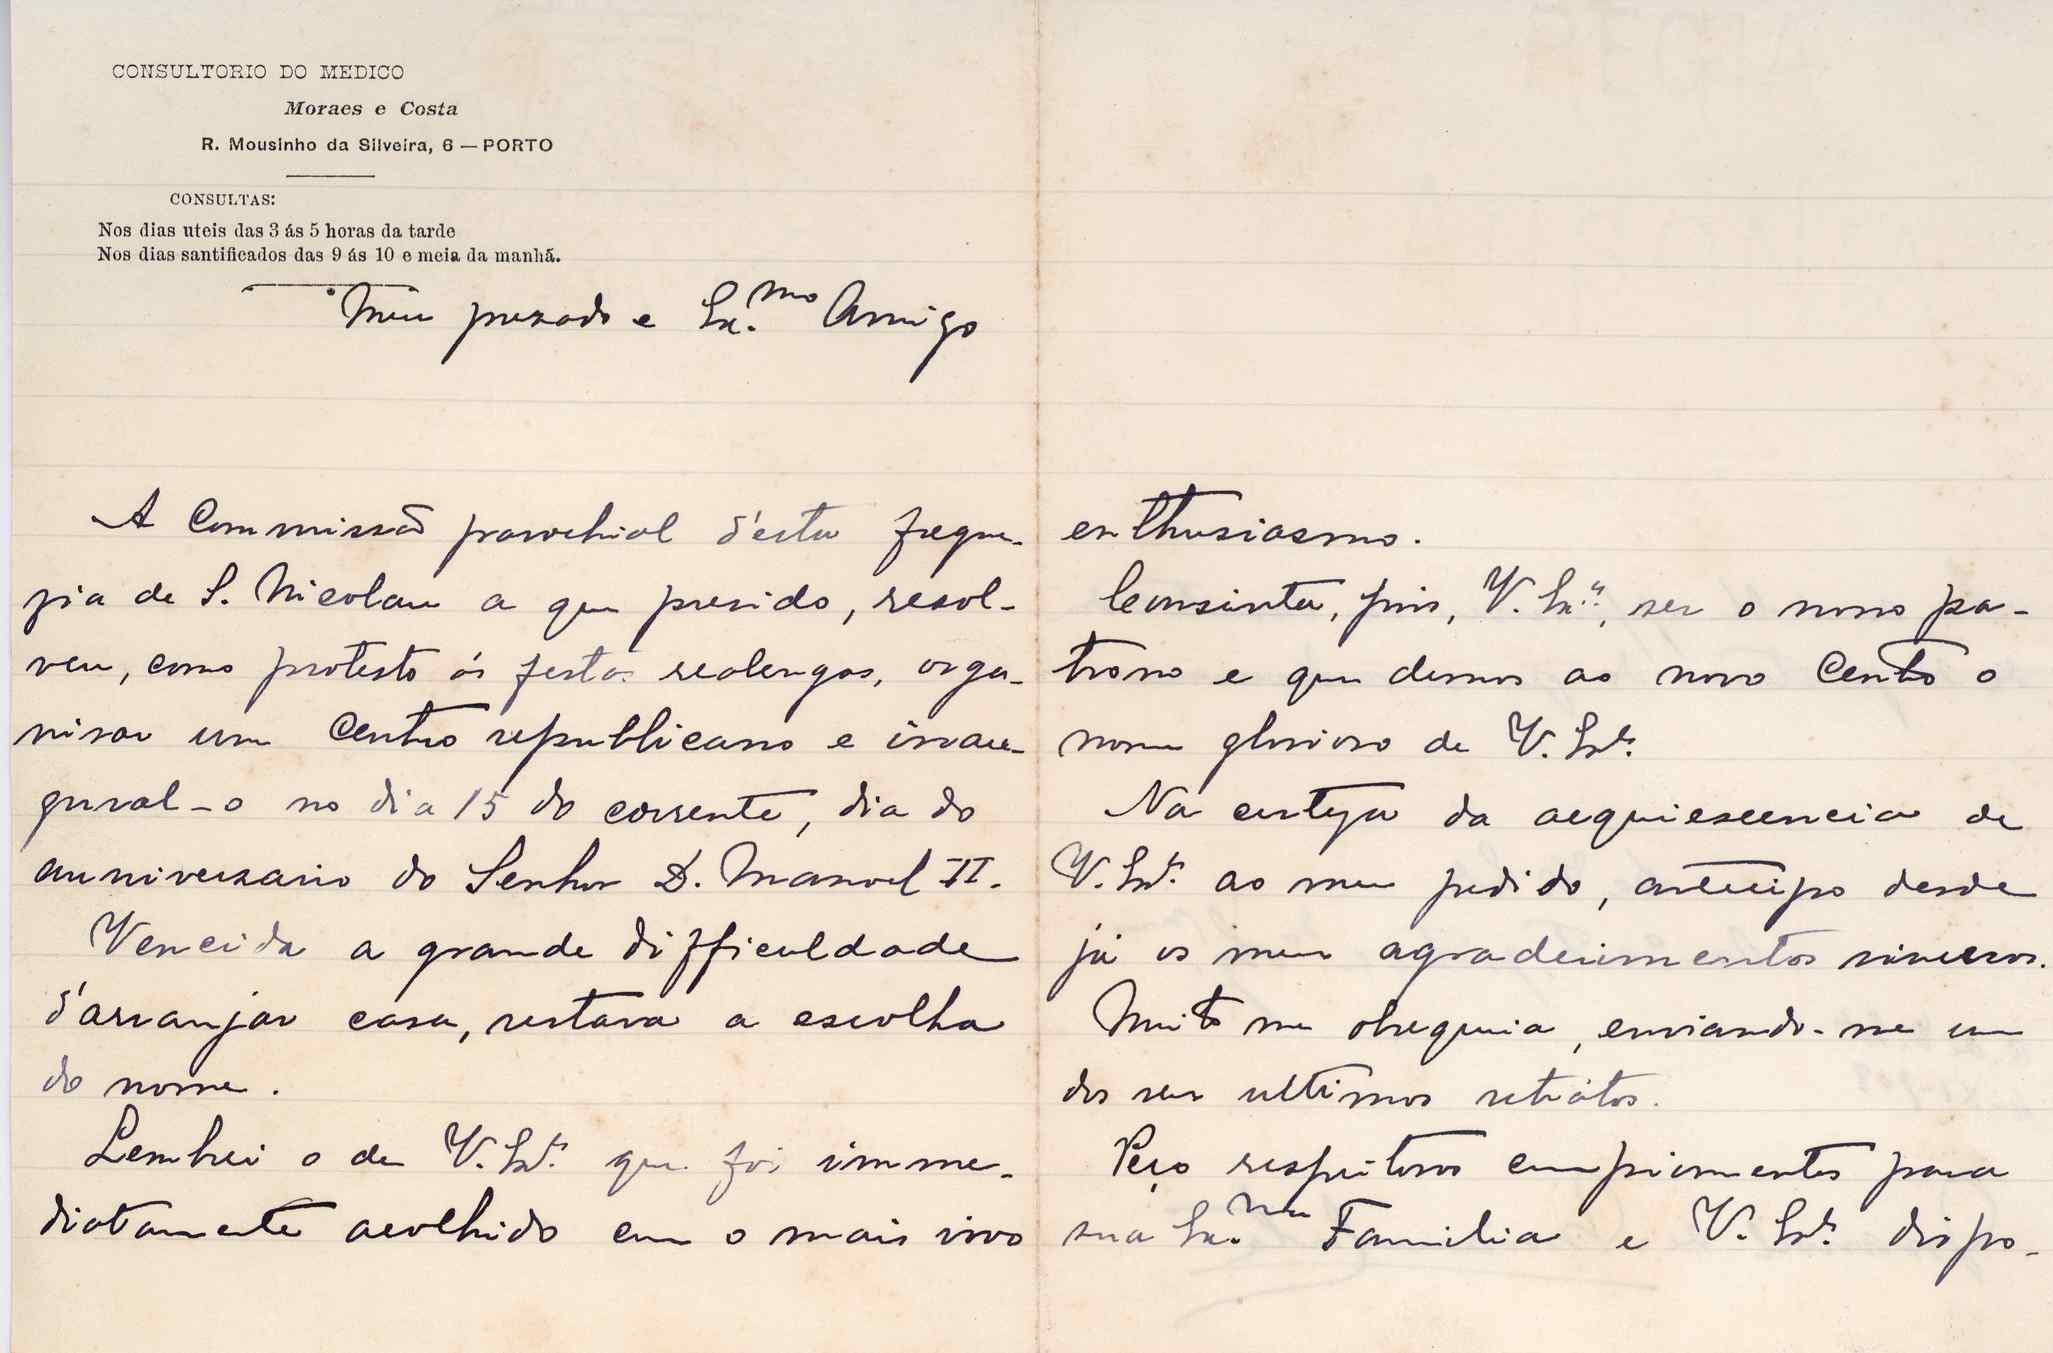 CONSULTORIO DO MEDICO
Moraes e Costa
R. Mousinho da Silveira, 6 — PORTO
CONSULTAS:
Nos dias uteis das 3 ás 5 horas da tarde
Nos dias santificados das 9 ás 10 e meia da manhã.
Meu presado e Ex.mo Amigo
A Commissão parochial d'esta fregue-
zia de S. Nicolau a que presido, resol-
veu, como protesto ás festas realengas, orga-
nisar um Centro republicano e inau-
gural-o no dia 15 do corrente, dia do
anniversario do Senhor D. Manoel II.
Vencida a grande difficuldade
d'arranjar casa, restava a escolha
do nome.
Lembrei o de V. Ex.ª que foi imme-
diatamente acolhido com o mais vivo
enthusiasmo.
Consinta, pois, V. Ex.ª, ser o nosso pa-
trono e que demos ao novo Centro o
nome glorioso de V. Ex.ª
Na certeza da acquiescencia de
V. Ex.ª ao meu pedido, antecipo desde
já os meus agradecimentos sinceros.
Muito me obsequia, enviando-me um
dos seus ultimos retratos.
Peço respeitosos cumprimentos para
sua Ex.ma Familia e V. Ex.ª dispo-